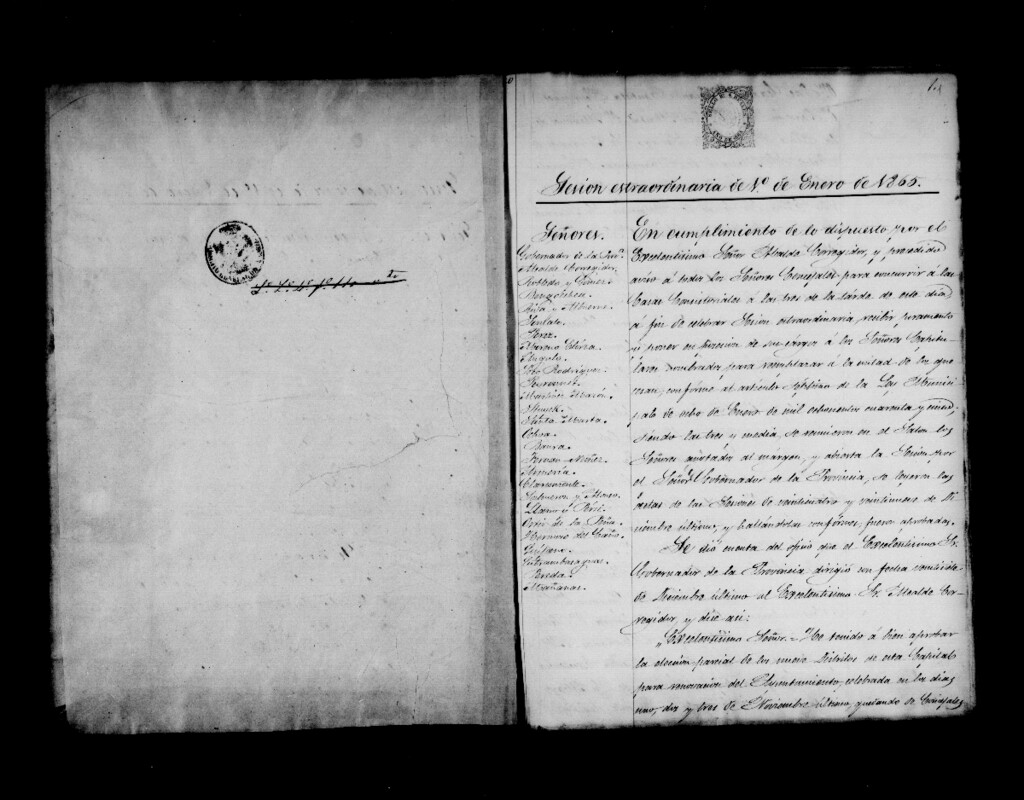 1.
Sesion estraordinaria de 1.º de Enero de 1865.
Señores.
Gobernador de la Prov.ª
Alcalde Corregidor.
Robledo y Gomez.
Avila y
Perez.
Moreno Elorza.
Angulo.
Soto Rodriguez.
Martinez
Santa Marta.
Ochoa.
Baura.
Fernan-Nuñez.
Almeria.
Claramonte.
y Alonso.
Llano y
Ortiz de la Peña.
Herrero del
Entrambasaguas.
Pereda.
Mañanas.
En cumplimiento de lo dispuesto por el
Excelentísimo Señor Alcalde Corregidor, y precedido
aviso á todos los Señores Concejales para concurrir á las
Casas Consistoriales á las tres de la tarde de este dia
á fin de celebrar Sesion estraordinaria, recibir juramento
y poner en posesion de sus cargos á los Señores Capitu-
lares nombrados para remplazar á la mitad de los que
cesan, conforme al artículo septimo de la Ley Munici-
pal de ocho de Enero de mil ochocientos cuarenta y cinco,
siendo las tres y media, se reunieron en el Salon los
Señores anotados al margen, y abierta la Sesion por
el Señor Gobernador de la Provincia, se leyeron las
actas de las Sesiones de veinticuatro y veintinueve de Di-
ciembre último, y hallandolas conformes, fueron aprobadas.
Se dió cuenta del oficio que el Excelentísimo Sr.
Gobernador de la Provincia dirigió con fecha
de Diciembre último al Excelentísimo Sr. Alcalde Cor-
regidor, y dice asi:
"Excelentísimo Señor. = He tenido á bien aprobar
la eleccion parcial de los nueve distritos de esta Capital
para renovacion del Ayuntamiento, celebrada en los dias
uno, dos y tres de Noviembre último, quedando de Concejales